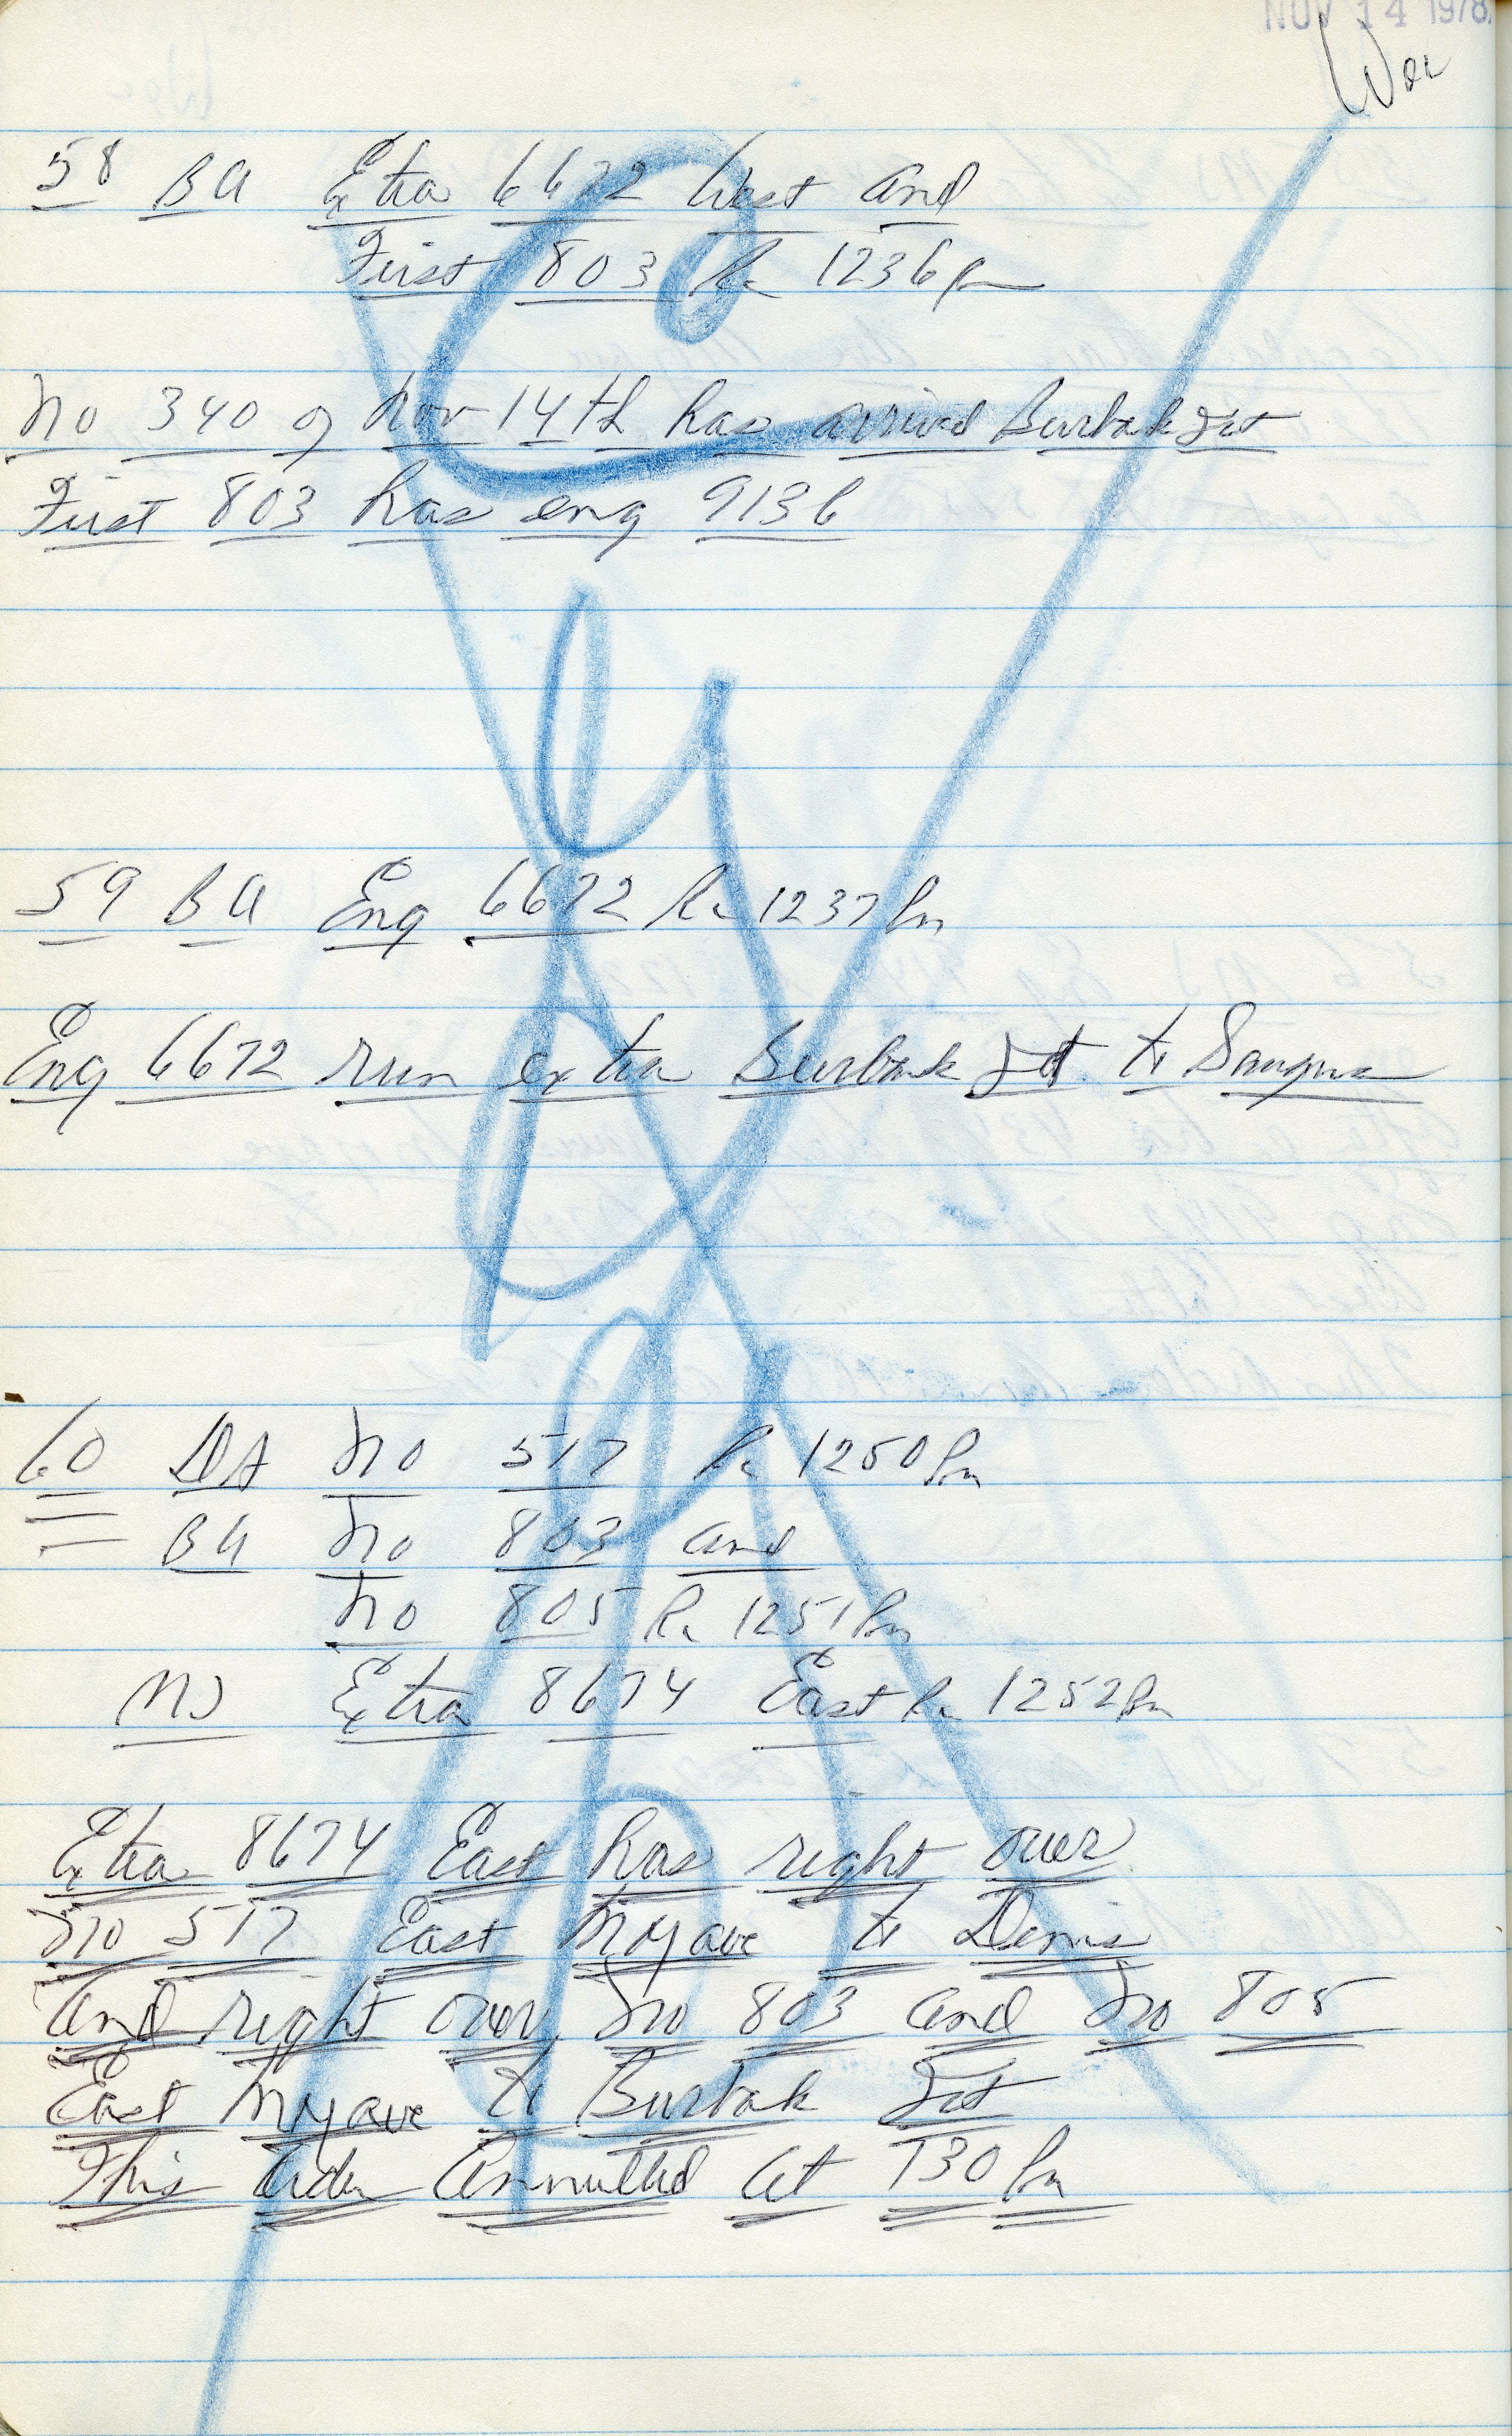 NOV 14 1978
58 BU Extra 6672 West and
First 803 Rn 1236 Pm
No 340 of Nov 14th has arrived Burbank Jct
First 803 has eng 9136
59 BU Eng 6672 Rn 1237 Pm
Eng 6672 run extra Burbank Jct to Saugus
60 DA No 517 Rn 1250 Pm
BU No 803 and
No 805 Rn 1251 Pm
MJ Extra 8674 East Rn 1252 Pm
Extra 8674 East has right over
No 517 East Mojave to Denis
and right over No 803 and No 805
East Mojave to Burbak Jct
This Order Annulled At 130 Pm
Copied